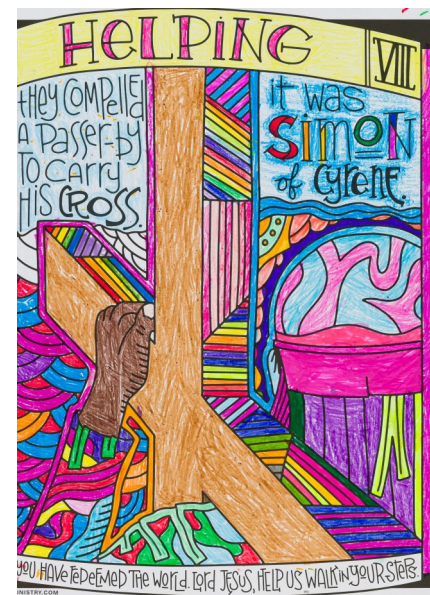 HELPING
VIII
they COMPELLED
A PASSER-by
TO CARRY
HIS CROSS.
it was
SIMON
of Cyrene.
YOU HAVE REDEEMED THE WORLD. LORD JESUS, HELP US WALK IN YOUR STEPS.
INISTRY.COM